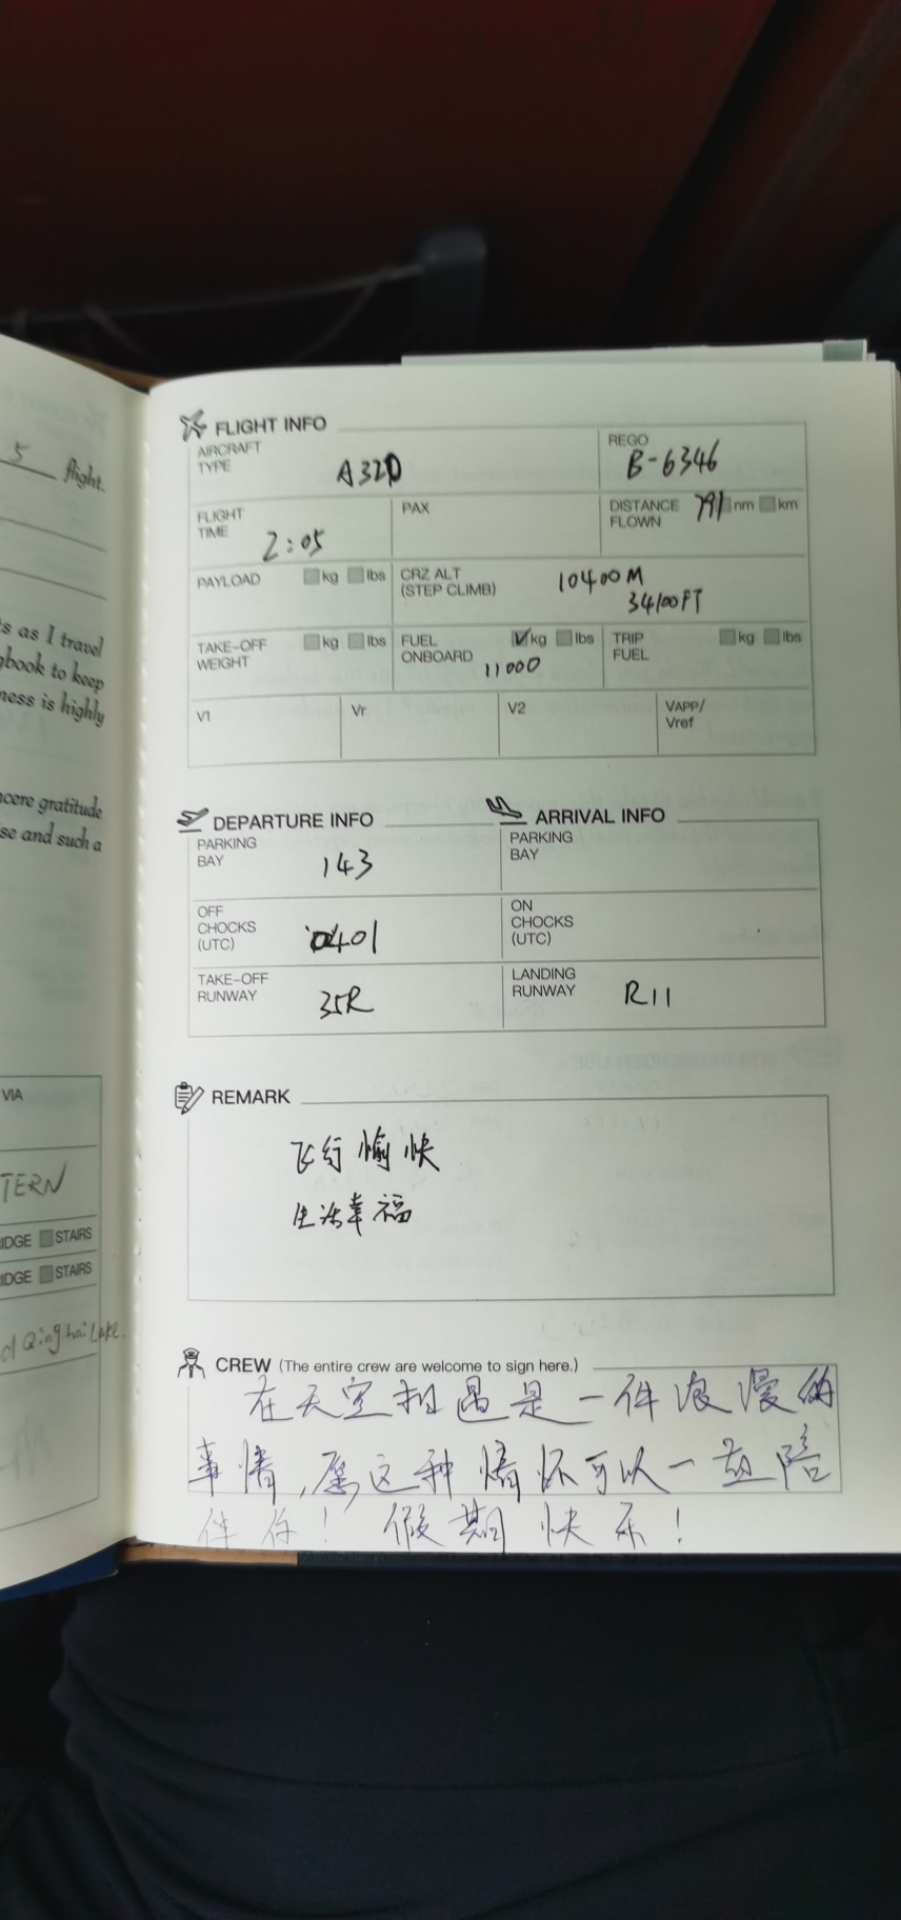 5 flight.
s as I travel
gbook to keep
ness is highly
ncere gratitude
se and such a
VIA
TERN
IDGE STAIRS
IDGE STAIRS
d Qinghai Lake.
FLIGHT INFO
AIRCRAFT TYPE A320
REGO B-6346
FLIGHT TIME 2:05
PAX
DISTANCE FLOWN 791 nm km
PAYLOAD kg lbs
CRZ ALT (STEP CLIMB) 10400M
34100FT
TAKE-OFF WEIGHT kg lbs
FUEL ONBOARD kg lbs 11000
TRIP FUEL kg lbs
V1
Vr
V2
VAPP/ Vref
DEPARTURE INFO
ARRIVAL INFO
PARKING BAY 143
PARKING BAY
OFF CHOCKS (UTC) 0401
ON CHOCKS (UTC)
TAKE-OFF RUNWAY 35R
LANDING RUNWAY R11
REMARK
飞行愉快
生活幸福
CREW (The entire crew are welcome to sign here.)
在天空相遇是一件浪漫的
事情,愿这种情怀可以一直陪
伴你! 假期快乐!